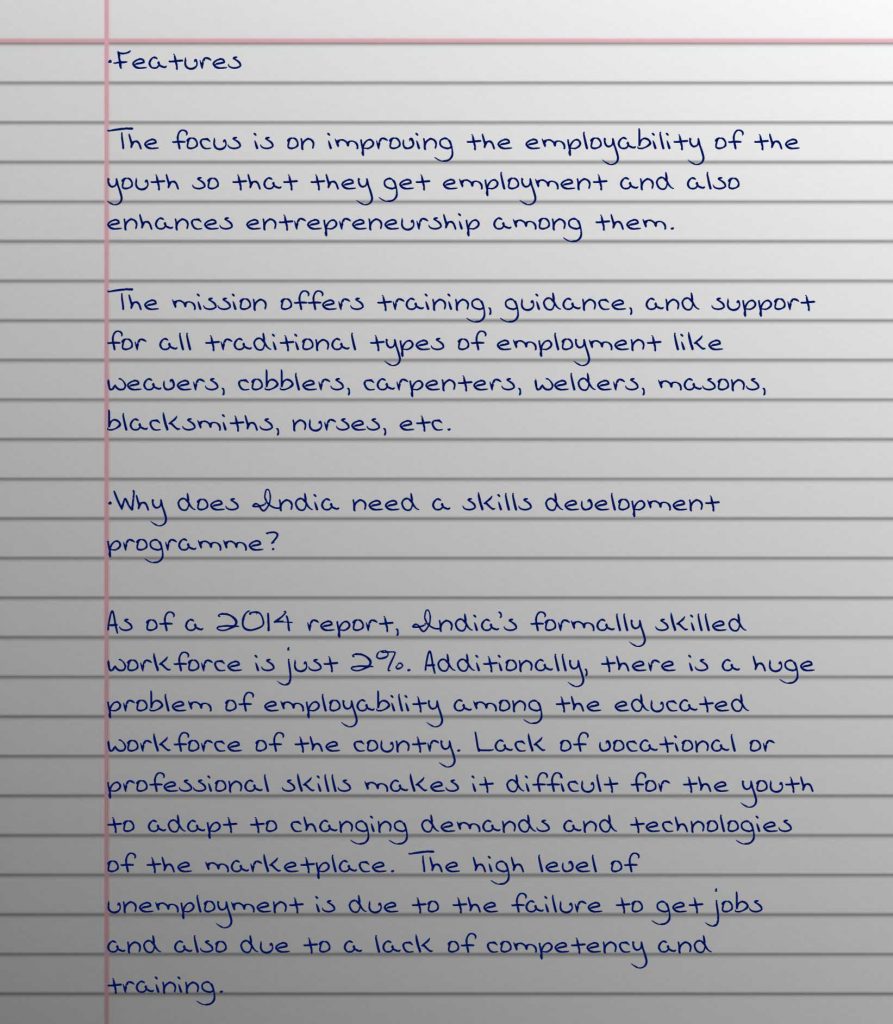 ·Features
The focus is on improving the employability of the
youth so that they get employment and also
enhances entrepreneurship among them.
The mission offers training, guidance, and support
for all traditional types of employment like
weavers, cobblers, carpenters, welders, masons,
blacksmiths, nurses, etc.
·Why does India need a skills development
programme?
As of a 2014 report, India's formally skilled
workforce is just 2%. Additionally, there is a huge
problem of employability among the educated
workforce of the country. Lack of vocational or
professional skills makes it difficult for the youth
to adapt to changing demands and technologies
of the marketplace. The high level of
unemployment is due to the failure to get jobs
and also due to a lack of competency and
training.